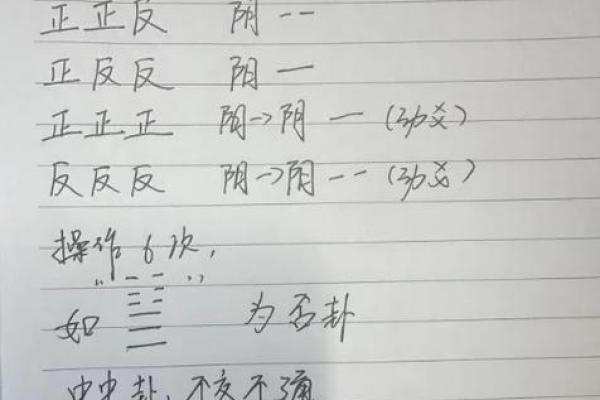 正正反 阴 --
正反反 阳 —
正正正 阳->阴 — (动爻)
反反反 阴->阳 -- (动爻)
操作6次,
如“ ” 为否卦
中中卦,不交不通